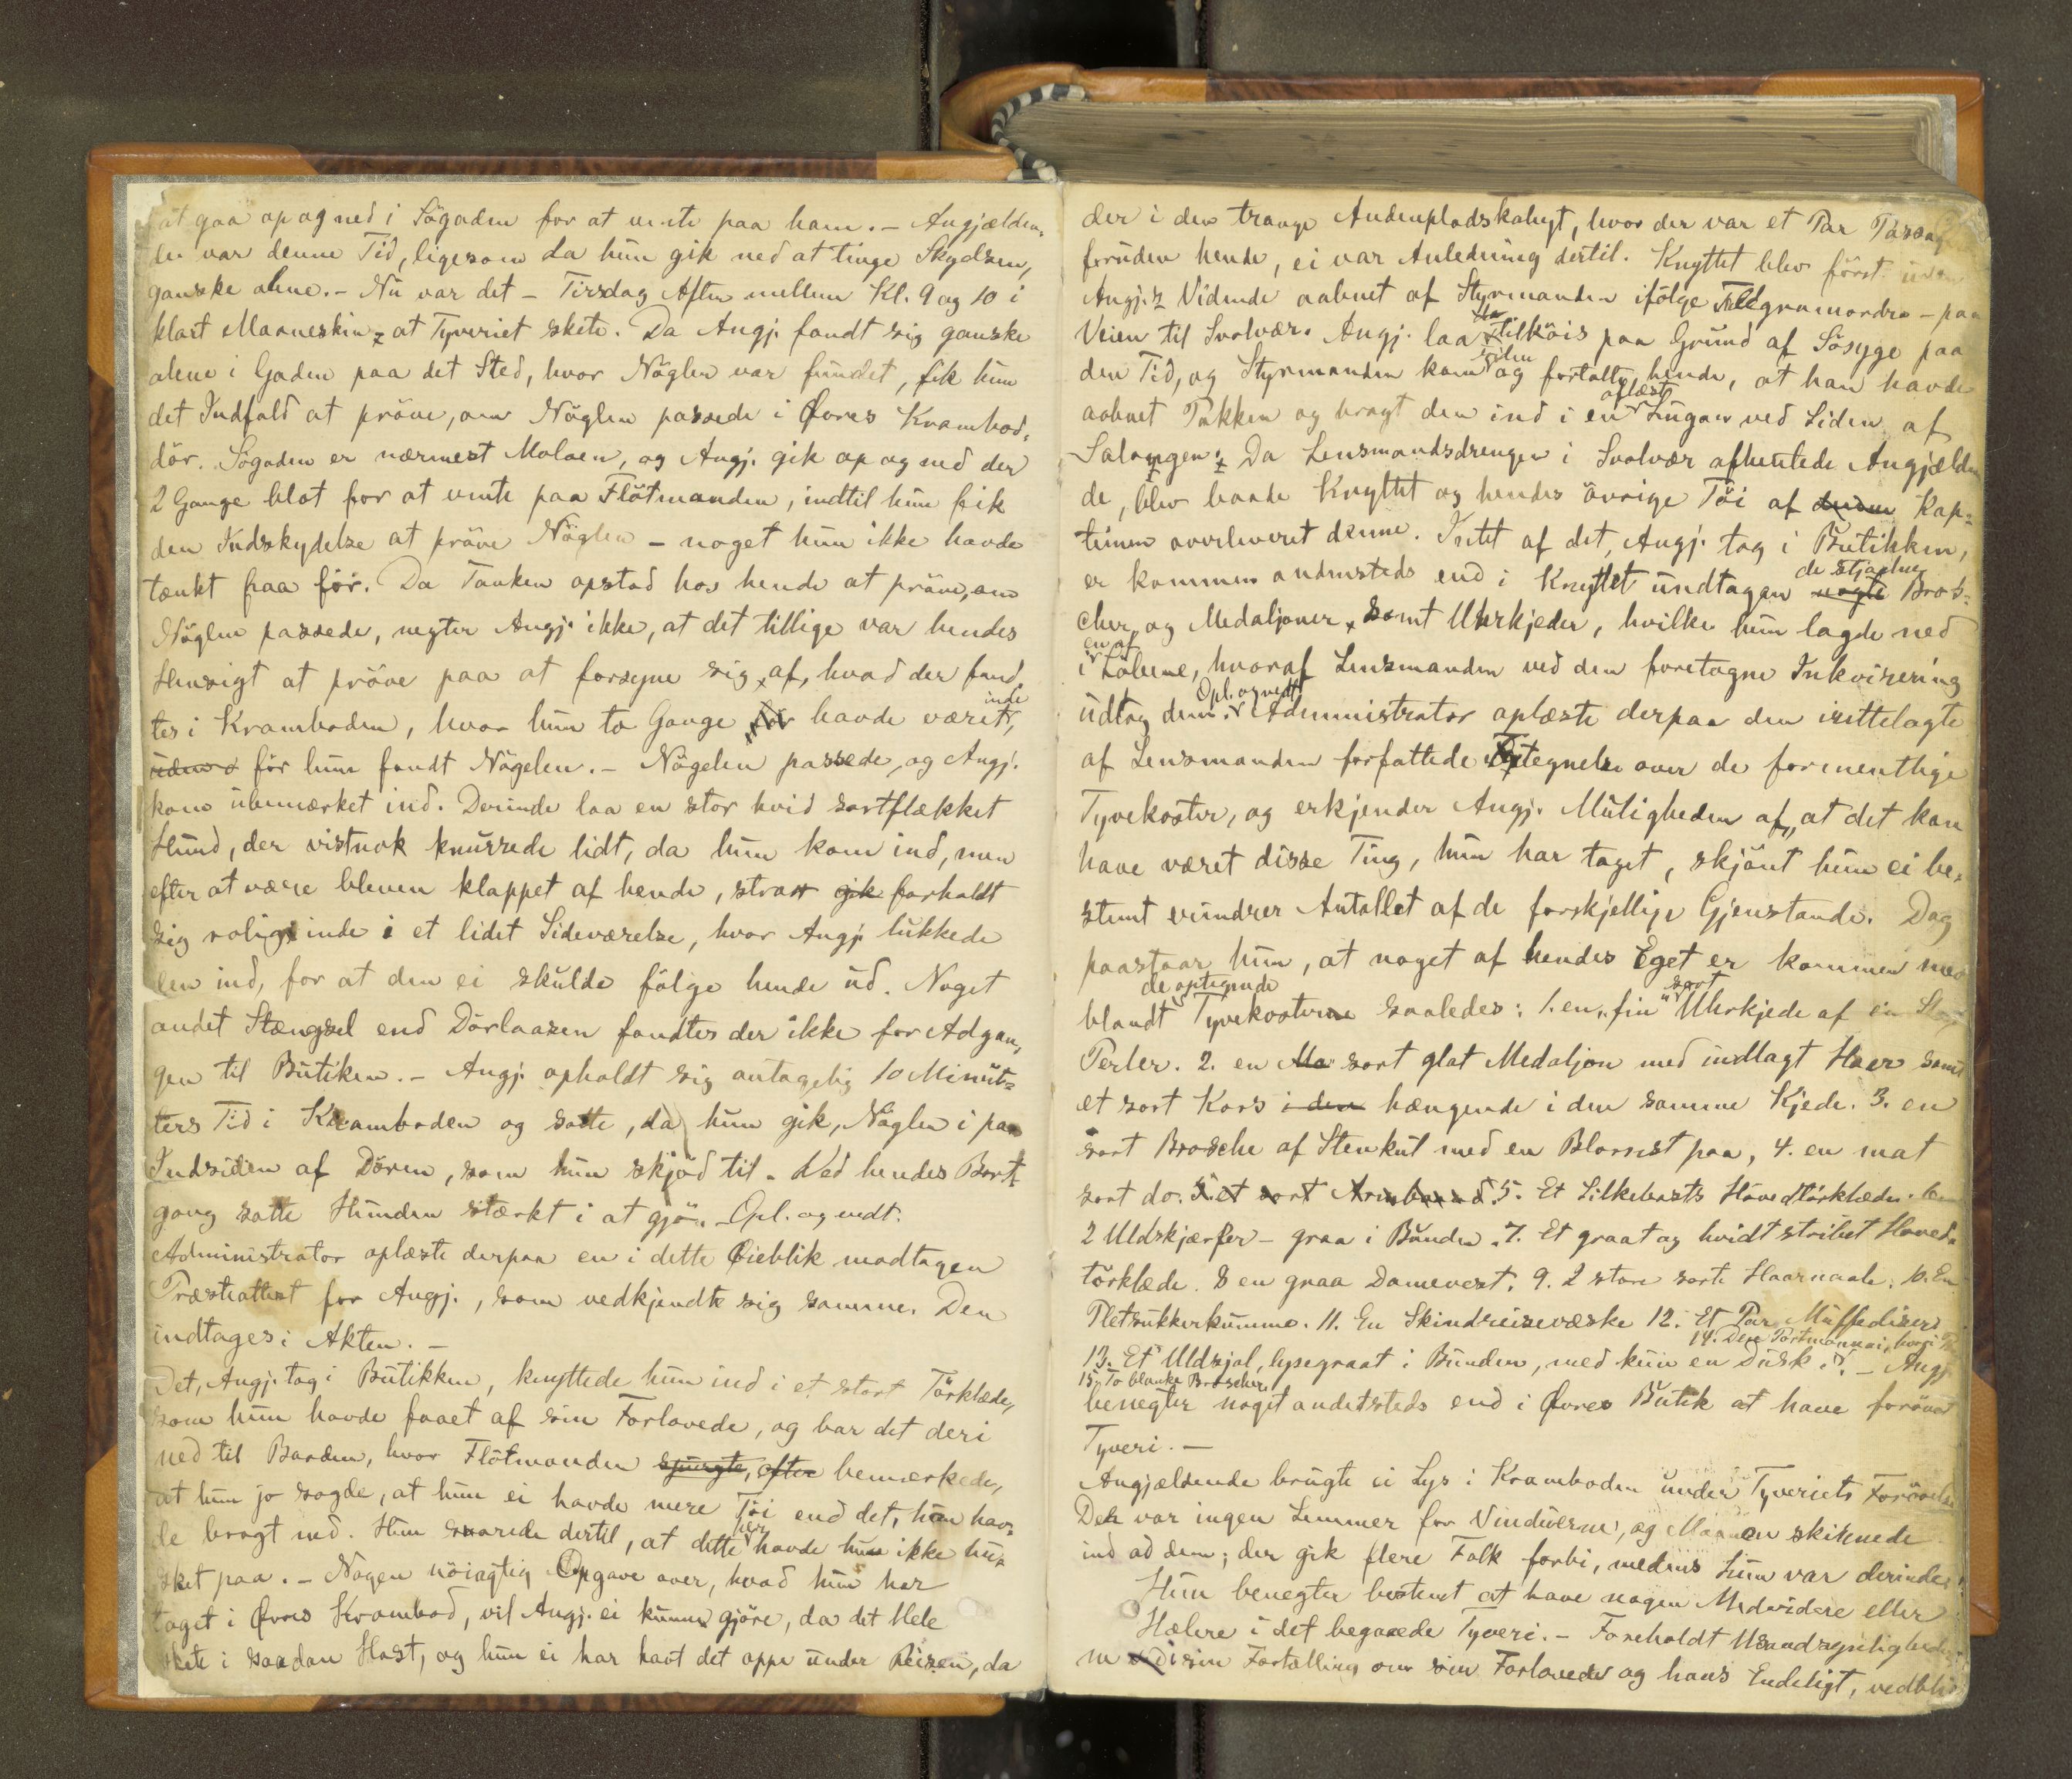 at gaa op og ned i Sögaden for at vente paa ham. - Angjælden,
de var denne Tid, ligesom da hun gik ned at tinge Skydsen,
ganske alene. - Nu var det - Tirsdag Aften mellem Kl. 9 og 10 i
klart Maaneskin - at Tyveriet skete. Da Angj. fandt sig ganske
alene i Gaden paa det Sted, hvor Nöglen var fundet, fik hun
det Indfald at pröve, om Nöglen passede i Øvres Krambod,
dör. Sögaden er nærmest Moloen, og Angj. gik op og ned der
2 Gange blot for at vente paa Flötmanden, indtil hun fik
den Indskydelse at pröve Nöglen - noget hun ikke havde
tænkt paa för. Da Tanken opstod hos hende at pröve, om
Nöglen passede, negter Angj. ikke, at det tillige var hendes
Hensigt at pröve paa at forsyne sig af, hvad der fand,
tes i Kramboden, hvor hun to Gange för havde været inde,
för hun fandt Nögelen. - Nögelen passede, og Angj.
kom ubemærket ind. Derinde laa en stor hvid sortflækket
Hund, der vistnok knurrede lidt, da hun kom ind, men
efter at være bleven klappet af hende, strax gik forholdt
sig rolig inde i et lidet Sideværelse, hvor Angj. lukkede
den ind, for at den ei skulde fölge hende ud. Noget
andet Stængsel end Dörlaasen fandtes der ikke for Adgan,
gen til Butiken. - Angj. opholdt sig antagelig 10 Minut=
ters Tid i Kramboden og satte, da hun gik, Nöglen i paa
Indsiden af Dören, som hun skjöd til. Ved hendes Bort
gang satte Hunden stærkt i at gjö. - Opl. og vedt.
Administrator oplæste derpaa en i dette Øieblik modtagen
Præsteattest for Angj., som vedkjendte sig samme. Den
indtages i Akten. -
Det, Angj. tog i Butikken, knyttede hun ind i et stort Törklæde,
som hun havde faaet af sin Forlovede, og bar det deri
ned til Baaden, hvor Flötmanden spurgte, efter bemærkede,
at hun jo sagde, at hun ei havde mere Töi end det, hun hav=
de bragt ned. Hun svarede dertil, at dette her havde hun ikke hu=
sket paa. - Nogen nöiagtig Opgave over, hvad hun har
taget i Øvres Krambod, vil Angj. ei kunne gjöre, da det Hele
skete i saadan Hast, og hun ei har havt det oppe under Reisen, da
der i den trange Andenpladskahyt, hvor der var et Par Passag
foruden hende, ei var Anledning dertil. Knyttet blev först uden
Angj.s Vidende aabnet af Styrmanden ifölge Telegramordre - paa
Veien til Svolvær. Angj. laa tilköis paa Grund af Sösyge paa
den Tid, og Styrmanden kom siden og fortalte hende, at han havde
aabnet Pakken og bragt den ind i en aflæst Lugar ved Siden af
Salongen. Da Lensmandsdrengen i Svolvær afhentede Angjælden
de, blev baade Knyttet og hendes övrige Töi af denne Kap=
teinen overleveret denne. Intet af det, Angj. tog i Butikken,
er kommen andensteds end i Knyttet undtagen nogle de stjaalne Bros=
cher og Medaljoner samt Uhrkjeder, hvilke hun lagde ned
i en af Lommerne, hvoraf Lensmanden ved den foretagne Inkvisering
udtog dem. Opl. og vedt. Administrator oplæste derpaa den irettelagte
af Lensmanden forfattede Optegnelse over de formentlige
Tyvekoster, og erkjender Angj. Muligheden af, at det kan
have været disse Ting, hun har taget, skjönt hun ei be=
stemt erindrer Antallet af de forskjellige Gjenstande. Dog
paastaar hun, at noget af hendes Eget er kommen med
blandt de optegnede Tyvekosterne saaledes: 1. en fin sort Uhrkjede af
Perler. 2. en Me sort glat Medaljon med indlagt Haar samt
et sort Kors i den hængende i den samme Kjede. 3. en
sort Brosche af Stenkul med en Blomst paa, 4. en mat
sort do. 5. et sort Armbaand 5. Et Silkebasts Hovedtörklæde. 6.
2 Uldskjærfer - graa i Bunden. 7. Et graat og hvidt stribet Hoved=
törklæde. 8 en graa Damevest. 9. 2 store sorte Haarnaale. 10. En
Pletsukkerkumme. 11. En Skindreisevæske 12. Et Par Muffediser
13. Et Uldsjal, lysegraat i Bunden, med kun en Dusk. 14. Dere Portmonnai, hvori - Angj.
15. To blanke Broscher
benegter noget andetsteds end i Øvres Butik at have forövet
Tyveri. -
Angjældende brugte ei Lys i Kramboden under Tyveriets Forövelse
Der var ingen Lemmer for Vinduerne, og Maanen skinnede
ind ad dem; der gik flere Folk forbi, medens hun var derinde.
Hun benegter bestemt at have nogen Medvidere eller
Hælere i det begaaede Tyveri. - Foreholdt Usandsynligheden
i sin Fortælling om sin Forlovede og hans Endeligt, vedbli